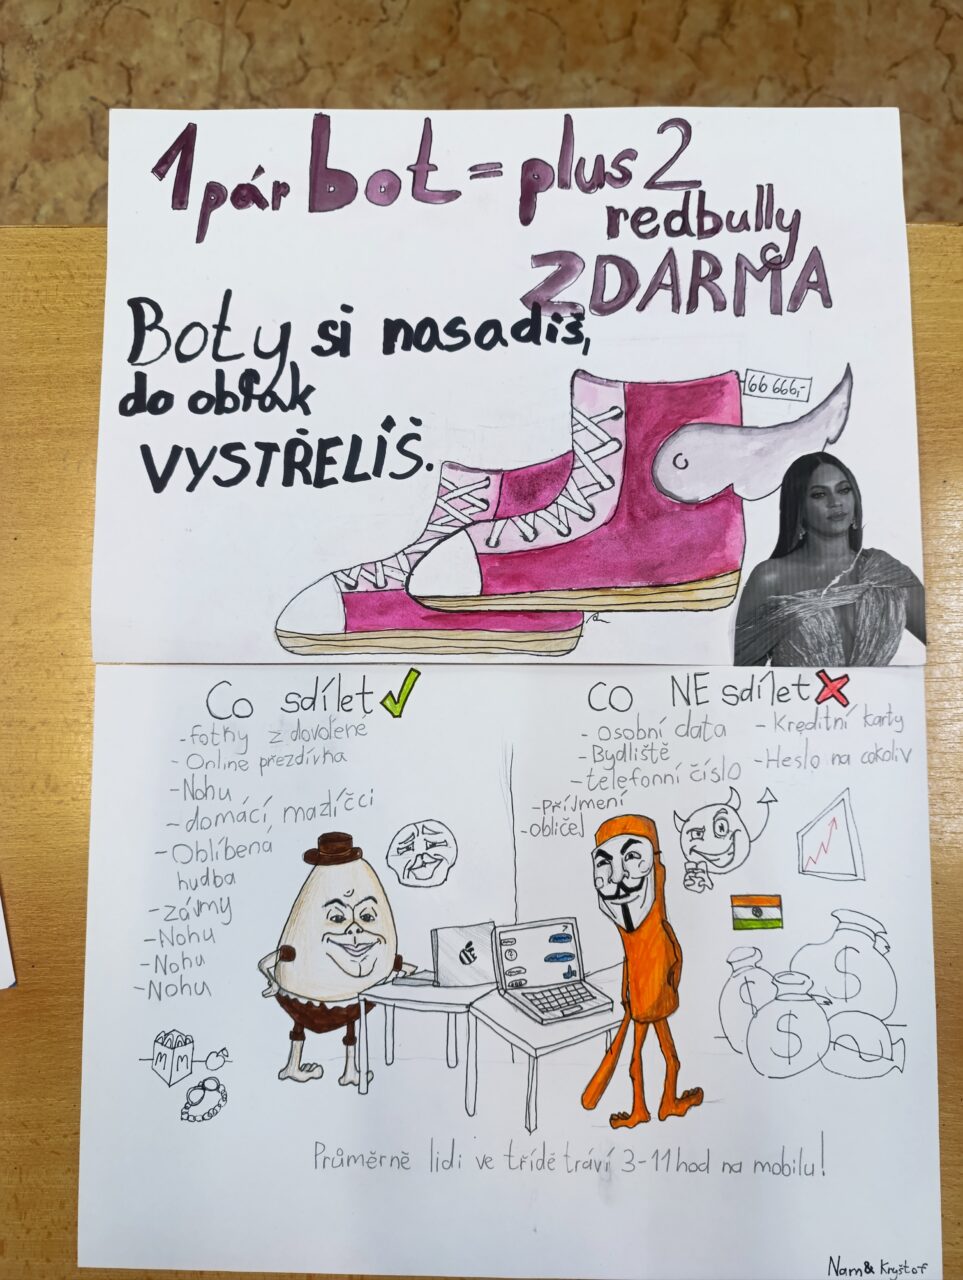 1 pár bot = plus 2
redbully
ZDARMA
Boty si nasadíš,
do oblak
VYSTŘELÍŠ.
66 666,-
Co sdílet
- fotky z dovolené
- Online přezdívka
- Nohu
- domácí mazlíčci
- Oblíbená
hudba
- zájmy
- Nohu
- Nohu
- Nohu
CO NE sdílet
- osobní data
- Bydliště
- telefonní číslo
- Příjmení
- obličej
- Kreditní karty
- Heslo na cokoliv
M M
$ $ $
Průměrně lidi ve třídě tráví 3-11 hod na mobilu!
Nam & Kryštof